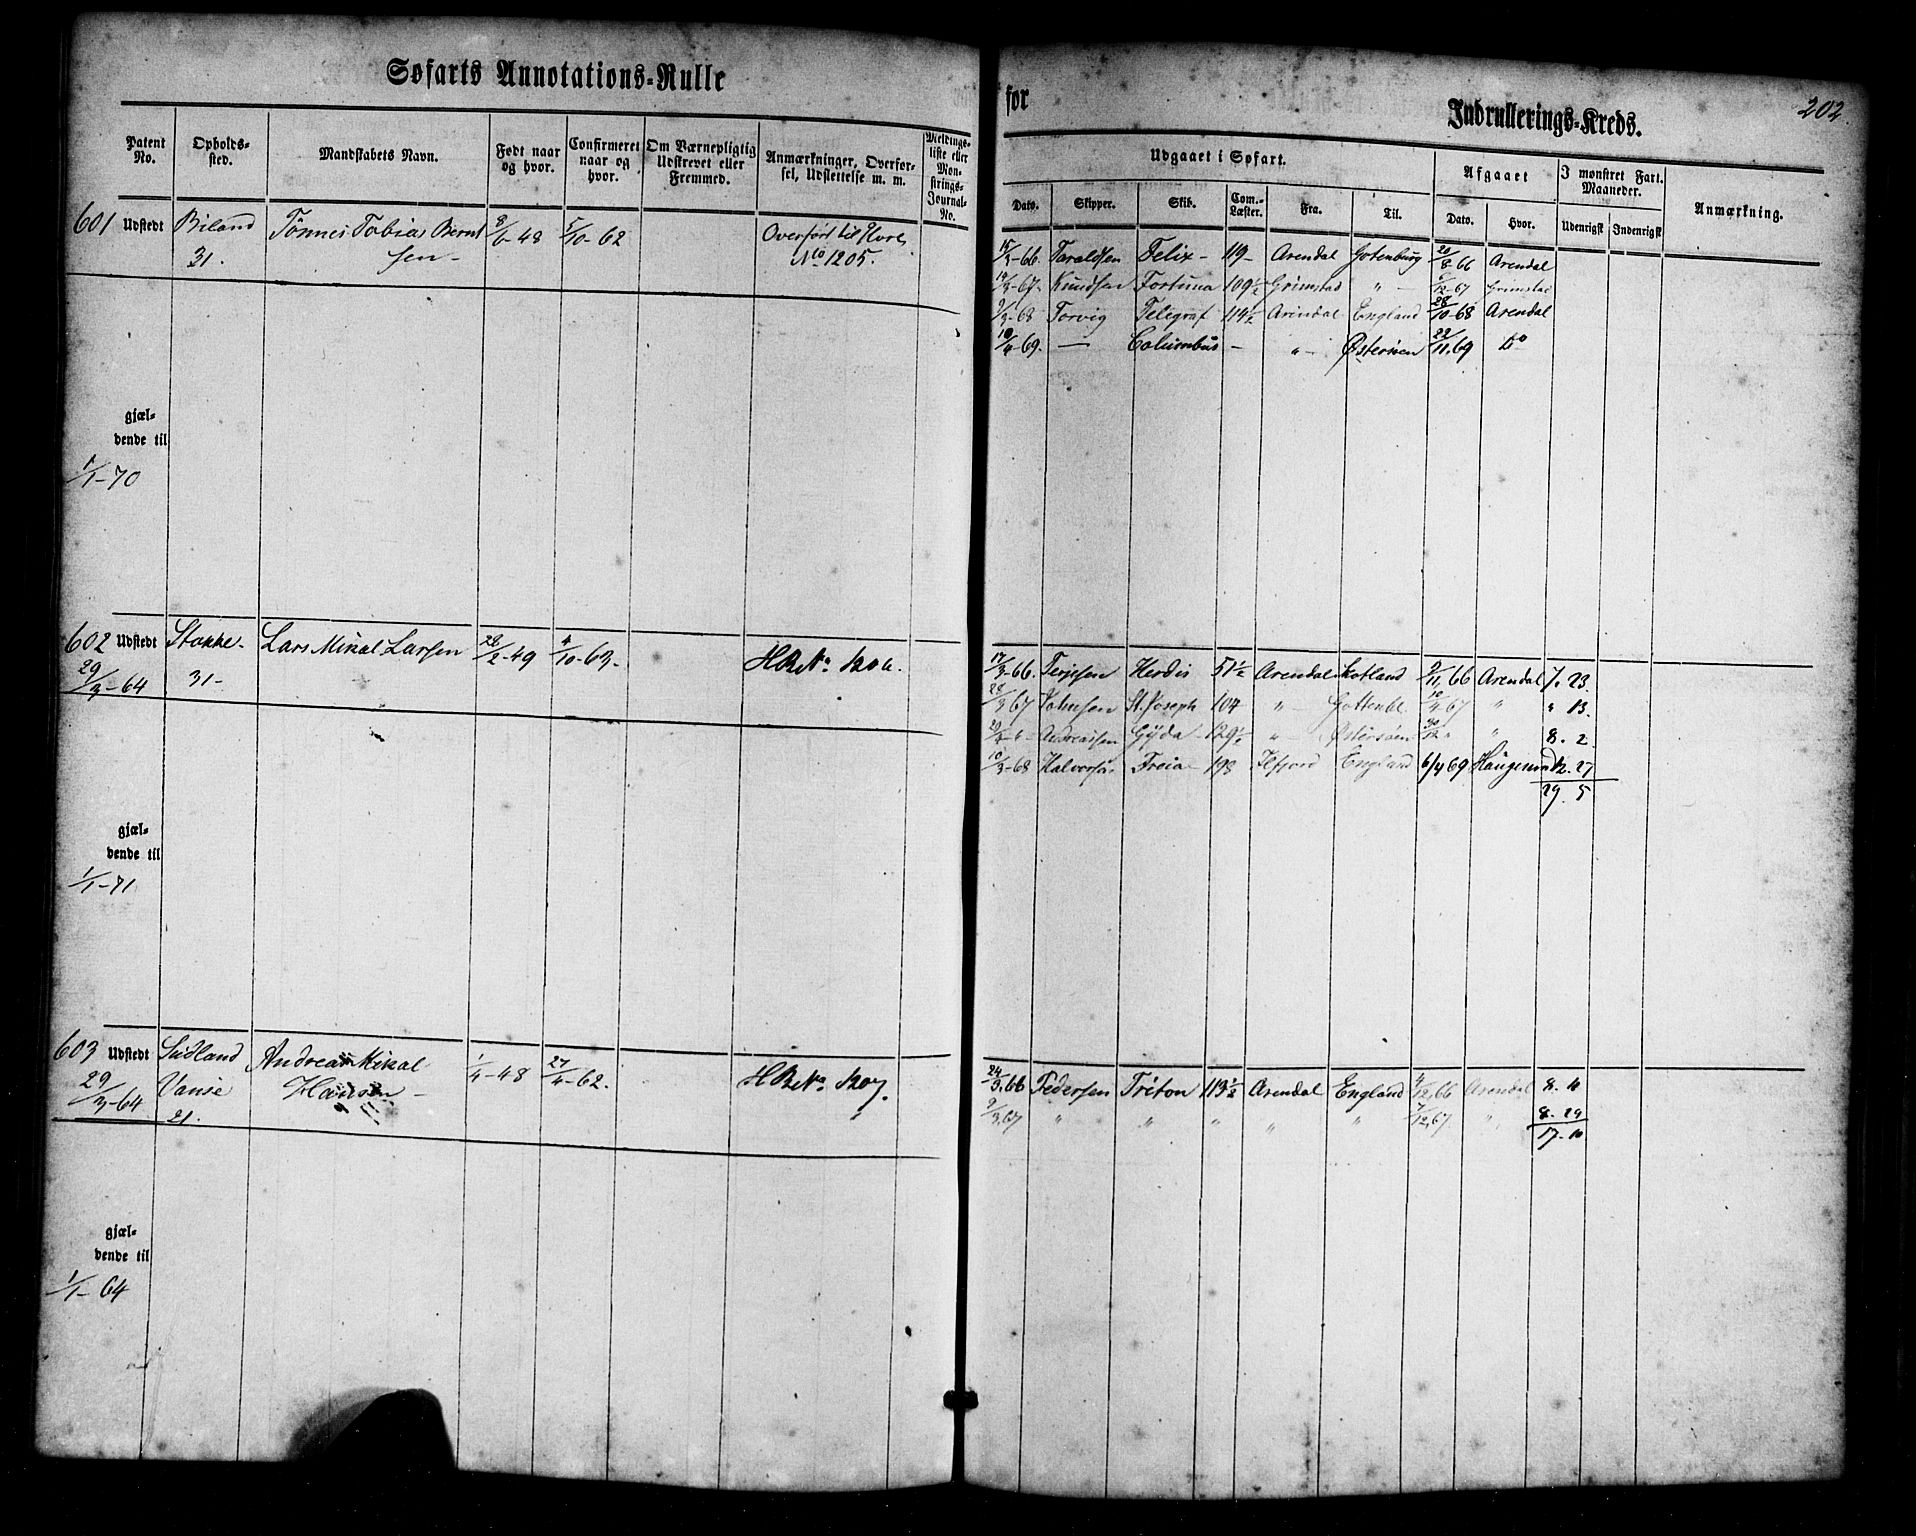 Søfarts Annotations-Rulle
for
Indrullerings-Kreds.
202.
Patent No.
Opholds-sted.
Mandskabets Navn.
Født naar og hvor.
Confirmeret naar og hvor.
Om Værnepligtig Udskrevet eller Fremmed.
Anmærkninger, Overfør-sel, Udslettelse m. m.
Meldings-liste eller Mon-strings-Journal-No.
Udgaaet i Søfart.
Afgaaet
I mønstret Fart. Maaneder.
Anmærkning.
Dato.
Skipper.
Skib.
Com.-Læster.
Fra.
Til.
Dato.
Hvor.
Udenrigsk
Indenrigsk
601 Udstedt Biland Tönnes Tobias Bernt 8/6-48 5/10-62 Overført til Hovr
31. sen- No 1205.
15/3-66. Taraldsen Felix- 119- Arendal Gotenburg 20/8-66 Arendal
/3-67. Knudsen Fortuna 109½ Grimstad " - /12-67 Grimstad
9/3-68 Torvig Telegraf 114½ Arendal England 28/10-68 Arendal
10/4-69. — Columbus - " - Østersøen 22/11.69 Do
gjæl-
dende til
1/1-70
602 Udstedt Stokke- Lars Mikal Larsen 28/2-49 4/10-63- HRNo. 1206.
29/3-64 31-
17/3-66. Terjesen Herdis 51½ Arendal Skotland 9/11.66 Arendal 7. 23.
28/3 67 Johnsen St. Joseph 104 " - Gottenb. 10/4 67 " " 13.
20/4- " - Andreassen Gyda- 129½ " - Østersøen 30/12 " " 8. 2
10/3-68 Halvorsen Freia 198 England 6/4 69 Haugesund 12. 27
29. 5
gjæl-
dende til
1/1-71
603 Udstedt Sudland Andreas Mikal 1/4-48 27/4-62. HRNo. 1207.
29/3-64 Vanse Hansen -
21.
24/3.66 Pedersen Triton 113½ Arendal England /12.66 Arendal 8. 11
9/3.67 " " " " " 7/12.67 " 8. 29
17. 10
gjæl-
dende til
1/1-64